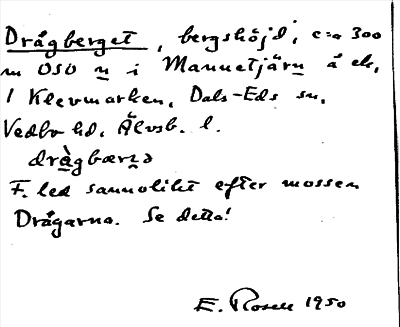 Drågberget, bergshöjd, c:a 300
m OSO n i Mannetjärn å ek.
1 Klevmarken, Dals-Eds sn,
Vedbo hd, Älvsb. l.
dràgbærɳə
F. led sannolikt efter mossen
Drågarna. Se detta!
E. Rosell 1950